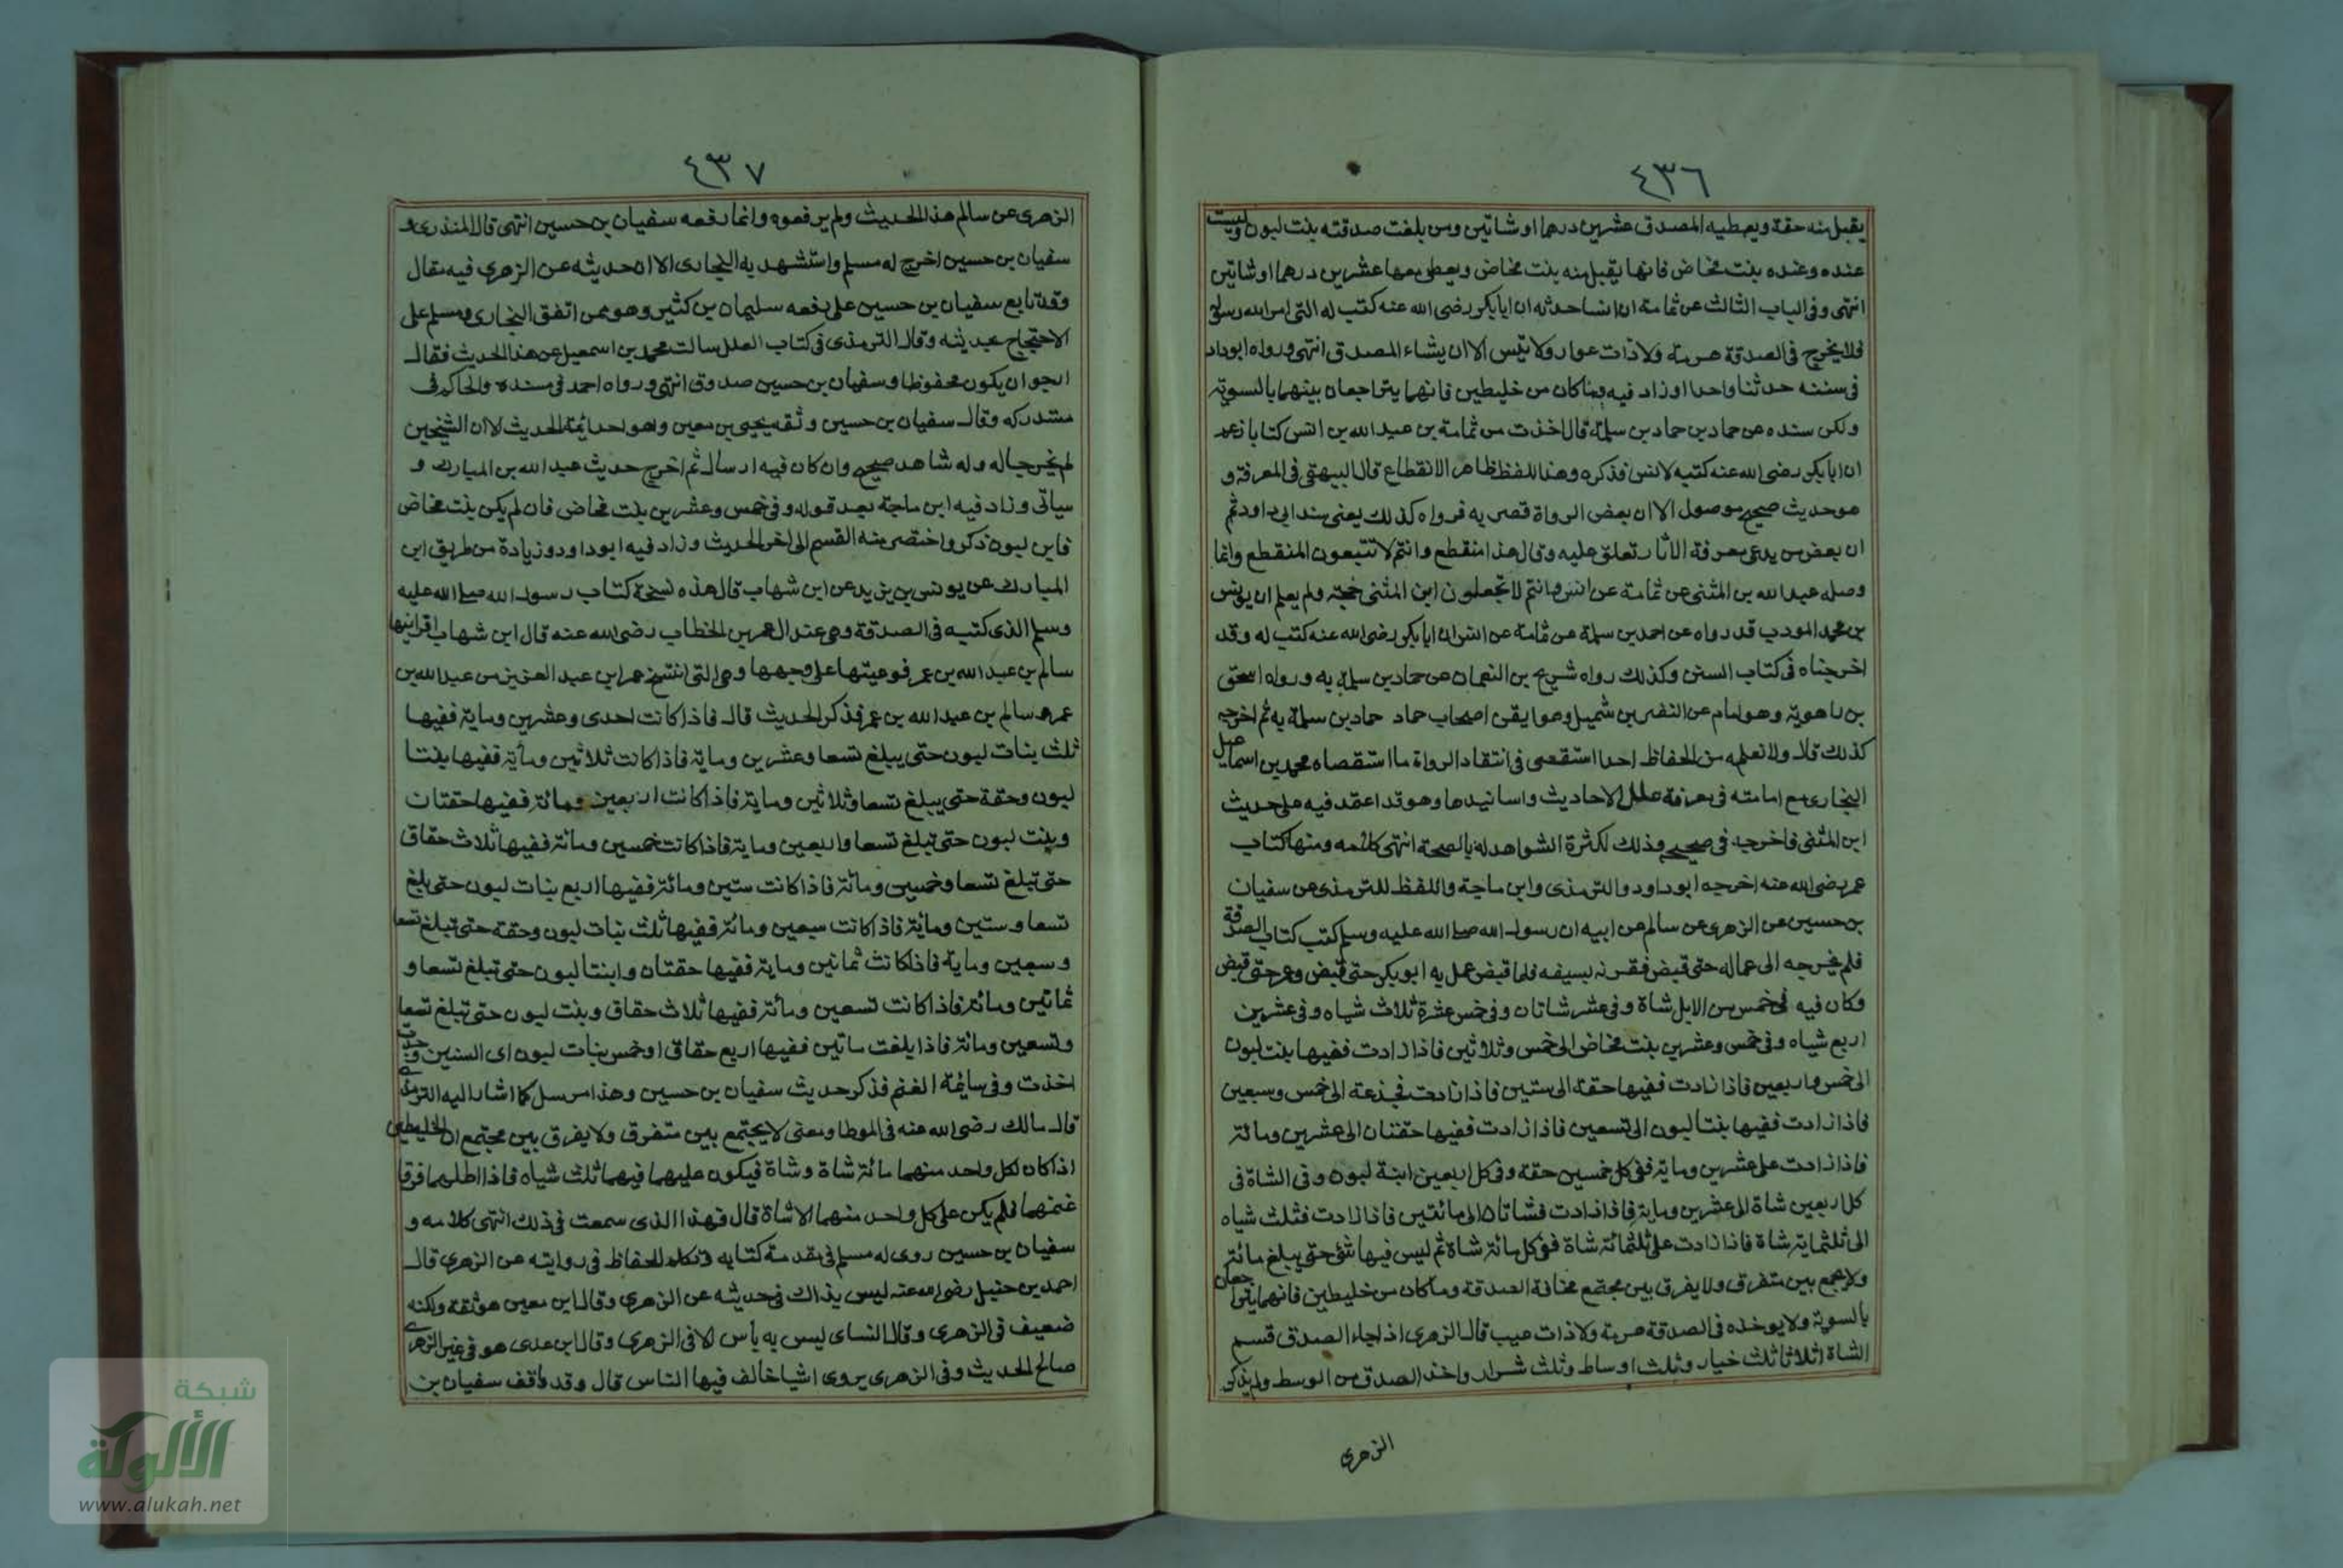 ٤٣٦
يقبل منه حقة ويعطيه المصدق عشرين درهما او شاتين ومن بلغت صدقته بنت لبون وليست
عنده وعنده بنت مخاض فانها يقبل منه بنت مخاض ويعطى معها عشرين درهما او شاتين
انتهى وفى الباب الثالث عن ثمامة ان انسا حدثه ان ابا بكر رضى الله عنه كتب له التى امر الله رسوله
فلا يخرج فى الصدقة هرمة ولا ذات عوار ولا تيس الا ان يشاء المصدق انتهى ورواه ابوداد
فى سننه حدثنا واحدا وزاد فيه وما كان من خليطين فانهما يتراجعان بينهما بالسوية
ولكن سنده عن حماد بن حماد بن سلمة قال اخذت من ثمامة بن عبد الله بن انس كتابا زعم
ان ابا بكر رضى الله عنه كتبه لانس فذكره وهذا اللفظ ظاهر الانقطاع قال البيهقى فى المعرفة و
هو حديث صحيح موصول الا ان بعض الرواة قصر به فرواه كذلك يعنى سند ابى داود ثم
ان بعض من يدعى معرفة الاثار تعلق عليه وقال هذا منقطع وانتم لا تتبعون المنقطع وانما
وصله عبد الله بن المثنى عن ثمامة عن انس وانتم لا تجعلون ابن المثنى حجة ولم يعلم ان يونس
بن محمد المودب قد رواه عن احمد بن سلمة عن ثمامة عن انس ان ابا بكر رضى الله عنه كتب له وقد
اخرجناه فى كتاب السنن وكذلك رواه شريح بن النعمان عن حماد بن سلمة به ورواه اسحق
بن راهوية وهو امام عن النضر بن شميل وهو ايقى اصحاب حماد حماد بن سلمة به ثم اخرجه
كذلك قال ولا نعلم من الحفاظ احدا استقصى فى انتقاد الرواة ما استقصاه محمد بن اسماعيل
البخارى مع امامته فى معرفة علل الاحاديث واسانيدها وهو قد اعتمد فيه على حديث
ابن المثنى فاخرجه فى صحيحه وذلك لكثرة الشواهد له بالصحة انتهى كلامه ومنها كتاب
عمر رضى الله عنه اخرجه ابو داود والترمذى وابن ماجة واللفظ للترمذى عن سفيان
بن حسين عن الزهرى عن سالم عن ابيه ان رسول الله صلى الله عليه وسلم كتب كتاب الصدقة
فلم يخرجه الى عماله حتى قبض فقرنه بسيفه فلما قبض عمل به ابو بكر حتى قبض وعمر حتى قبض
وكان فيه فى خمس من الابل شاة وفى عشر شاتان وفى خمس عشرة ثلاث شياه وفى عشرين
اربع شياه وفى خمس وعشرين بنت مخاض الى خمس وثلاثين فاذا زادت ففيها بنت لبون
الى خمس واربعين فاذا زادت ففيها حقة الى ستين فاذا زادت فجذعة الى خمس وسبعين
فاذا زادت ففيها بنتا لبون الى تسعين فاذا زادت ففيها حقتان الى عشرين ومائة
فاذا زادت على عشرين وماية ففى كل خمسين حقة وفى كل اربعين ابنة لبون وفى الشاة فى
كل اربعين شاة الى عشرين وماية فاذا زادت فشاتان الى مائتين فاذا زادت فثلث شياه
الى ثلثماية شاة فاذا زادت على ثلثمائة شاة ففى كل مائة شاة ثم ليس فيها شئ حتى يبلغ مائة
ولا يجمع بين متفرق ولا يفرق بين مجتمع مخافة الصدقة وما كان من خليطين فانهما يتراجعان
بالسوية ولا يوخذ فى الصدقة هرمة ولا ذات عيب قال الزهرى اذا جاء الصدق قسم
الشاة اثلاثا ثلث خيار وثلث اوساط وثلث شرار واخذ الصدق من الوسط ولم يذكر
الزهرى
٤٣٧
الزهرى عن سالم هذا الحديث ولم يرفعوه وانما رفعه سفيان بن حسين انتهى قال المنذرى و
سفيان بن حسين اخرج له مسلم واستشهد به البخارى الا ان حديثه عن الزهرى فيه مقال
وقد تابع سفيان بن حسين على رفعه سليمان بن كثير وهو ممن اتفق البخارى ومسلم على
الاحتجاج بحديثه وقال الترمذى فى كتاب العلل سالت محمد بن اسمعيل عن هذا الحديث فقال
ارجو ان يكون محفوظا وسفيان بن حسين صدوق انتهى ورواه احمد فى مسنده والحاكم فى
مستدركه وقال سفيان بن حسين وثقه يحيى بن معين وهو احد ائمة الحديث لا ان الشيخين
لم يخرجا له وله شاهد صحيح وان كان فيه ارسال ثم اخرج حديث عبد الله بن المبارك و
سياتى وزاد فيه ابن ماجة بعد قوله وفى خمس وعشرين بنت مخاض فان لم يكن بنت مخاض
فابن لبون ذكر واختصر منه القسم الى اخر الحديث وزاد فيه ابو داود وزيادة من طريق ابن
المبارك عن يونس بن يزيد عن ابن شهاب قال هذه نسخة كتاب رسول الله صلى الله عليه
وسلم الذى كتبه فى الصدقة وهى عند ال عمر بن الخطاب رضى الله عنه قال ابن شهاب اقرانيها
سالم بن عبد الله بن عمر فوعيتها على وجهها وهى التى انتسخ عمر ابن عبد العزيز من عبد الله بن
عمر وسالم بن عبد الله بن عمر فذكر الحديث قال فاذا كانت احدى وعشرين وماية ففيها
ثلث بنات لبون حتى يبلغ تسعا وعشرين وماية فاذا كانت ثلاثين وماية ففيها بنتا
لبون وحقة حتى يبلغ تسعا وثلاثين وماية فاذا كانت اربعين ومائة ففيها حقتان
وبنت لبون حتى تبلغ تسعا واربعين وماية فاذا كانت خمسين ومائة ففيها ثلاث حقاق
حتى تبلغ تسعا وخمسين ومائة فاذا كانت ستين ومائة ففيها اربع بنات لبون حتى يلغ
تسعا وستين وماية فاذا كانت سبعين ومائة ففيها ثلث بنات لبون وحقة حتى تبلغ تسعا
وسبعين وماية فاذا كانت ثمانين وماية ففيها حقتان وابنتا لبون حتى تبلغ تسعا و
ثمانين ومائة فاذا كانت تسعين ومائة ففيها ثلاث حقاق وبنت لبون حتى تبلغ تسعا
وتسعين ومائة فاذا بلغت ماتين ففيها اربع حقاق او خمس بنات لبون اى السنين وجدت
اخذت وفى سائمة الغنم فذكر حديث سفيان بن حسين وهذا مرسل كما اشار اليه الترمذى
قال مالك رضى الله عنه فى الموطا ومعنى لا يجتمع بين متفرق ولا يفرق بين مجتمع ان الخليطين
اذا كان لكل واحد منهما مائة شاة وشاة فيكون عليهما فيهما ثلث شياه فاذا اطلهما فرقا
غنمهما فلم يكن على كل واحد منهما الا شاة قال فهذا الذى سمعت فى ذلك انتهى كلامه و
سفيان بن حسين روى له مسلم فى مقدمة كتابه وتكلم الحفاظ فى روايته عن الزهرى قال
احمد بن حنبل رضى الله عنه ليس بذاك فى حديثه عن الزهرى وقال ابن معين هو ثقة ولكنه
ضعيف فى الزهرى وقال النساى ليس به باس الا فى الزهرى وقال ابن عدى هو فى غير الزهرى
صالح الحديث وفى الزهرى يروى اشيا خالف فيها الناس قال وقد وافف سفيان بن
شبكة
الألوكة
www.alukah.net